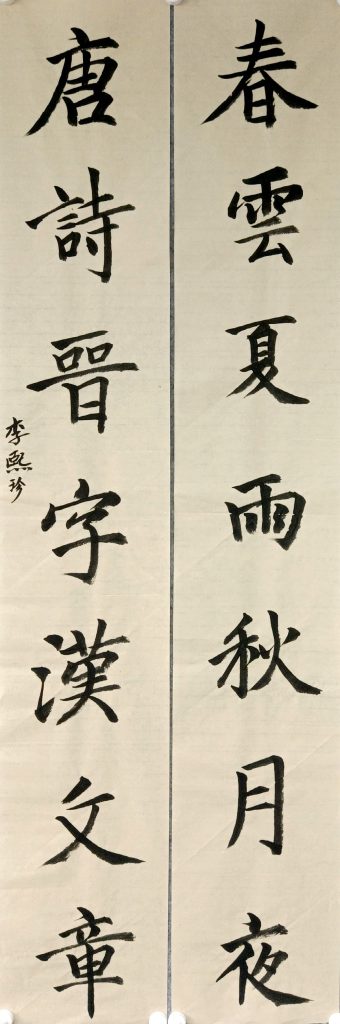 春雲夏雨秋月夜
唐詩晉字漢文章
李熙珍